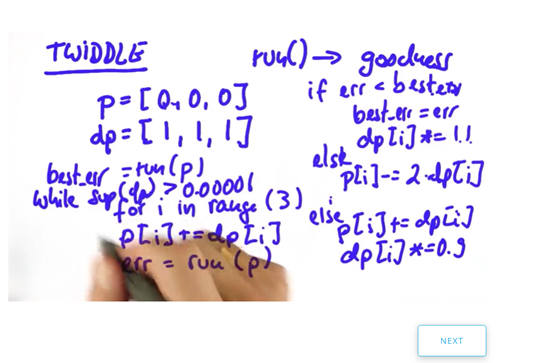 TWIDDLE
p = [0, 0, 0]
dp = [1, 1, 1]
best_err = run(p)
while sup(dp) > 0.00001
for i in range (3)
p[i] += dp[i]
err = run (p)
run() → goodness
if err < besterr
best_err = err
dp[i] *= 1.1
else
p[i] -= 2·dp[i]
else
p[i] += dp[i]
dp[i] *= 0.9
NEXT